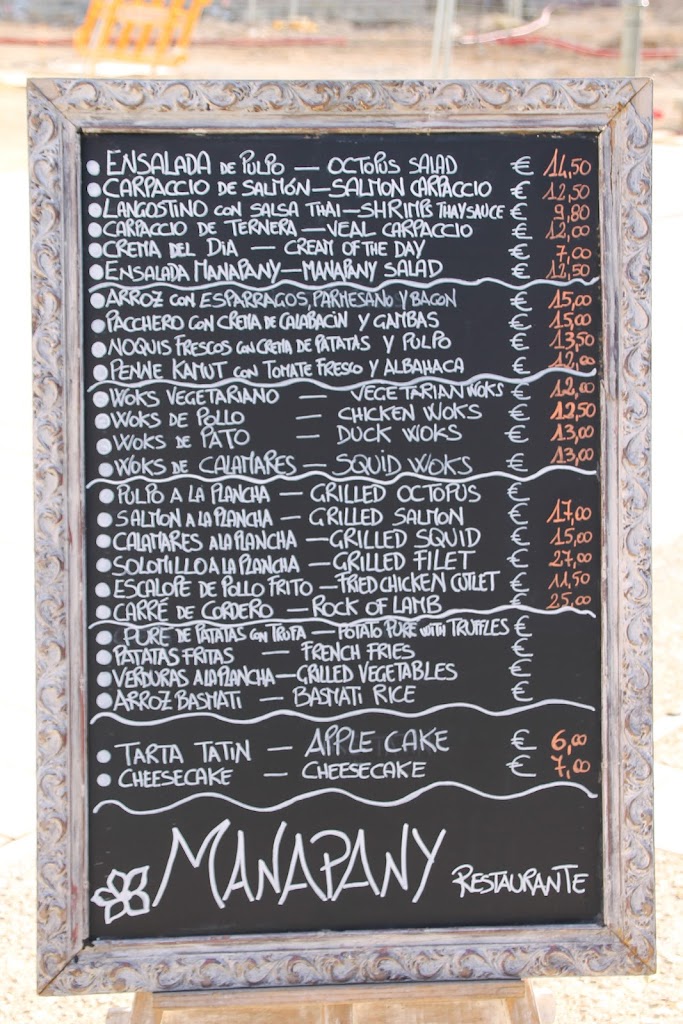 ENSALADA DE PULPO — OCTOPUS SALAD € 14,50
CARPACCIO DE SALMÓN — SALMON CARPACCIO € 12,50
LANGOSTINO CON SALSA THAI — SHRIMPS THAY SAUCE € 9,80
CARPACCIO DE TERNERA — VEAL CARPACCIO € 12,00
CREMA DEL DIA — CREAM OF THE DAY € 7,00
ENSALADA MANAPANY — MANAPANY SALAD € 12,50
ARROZ CON ESPARRAGOS, PARMESANO Y BACON € 15,00
PACCHERO CON CREMA DE CALABACIN Y GAMBAS € 15,00
NOQUIS FRESCOS CON CREMA DE PATATAS Y PULPO € 13,50
PENNE KAMUT CON TOMATE FRESCO Y ALBAHACA € 12,00
WOKS VEGETARIANO — VEGETARIAN WOKS € 12,00
WOKS DE POLLO — CHICKEN WOKS € 12,50
WOKS DE PATO — DUCK WOKS € 13,00
WOKS DE CALAMARES — SQUID WOKS € 13,00
PULPO A LA PLANCHA — GRILLED OCTOPUS €
SALMON A LA PLANCHA — GRILLED SALMON € 17,00
CALAMARES A LA PLANCHA — GRILLED SQUID € 15,00
SOLOMILLO A LA PLANCHA — GRILLED FILET € 27,00
ESCALOPE DE POLLO FRITO — FRIED CHICKEN CUTLET € 11,50
CARRÉ DE CORDERO — ROCK OF LAMB € 25,00
PURE DE PATATAS CON TRUFA — POTATO PURE WITH TRUFFLES €
PATATAS FRITAS — FRENCH FRIES €
VERDURAS A LA PLANCHA — GRILLED VEGETABLES €
ARROZ BASMATI — BASMATI RICE €
TARTA TATIN — APPLE CAKE € 6,00
CHEESECAKE — CHEESECAKE € 7,00
MANAPANY RESTAURANTE